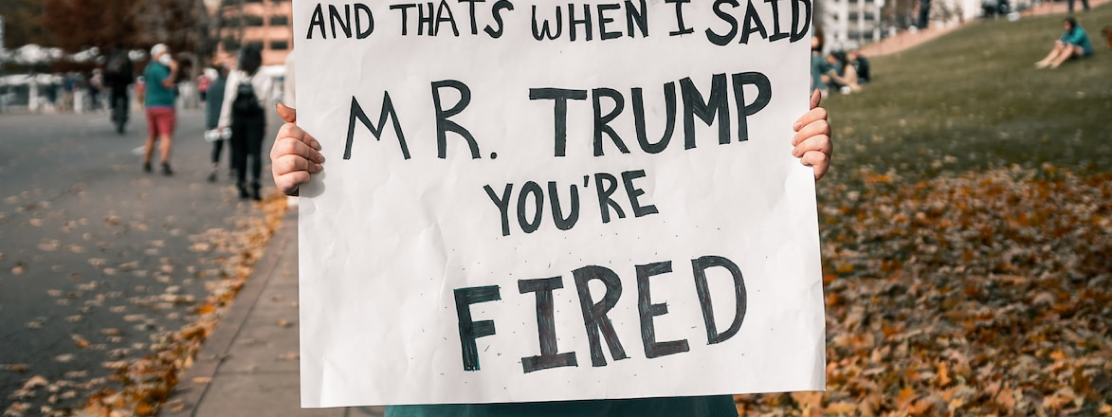 AND THATS WHEN I SAID
MR. TRUMP
YOU'RE
FIRED